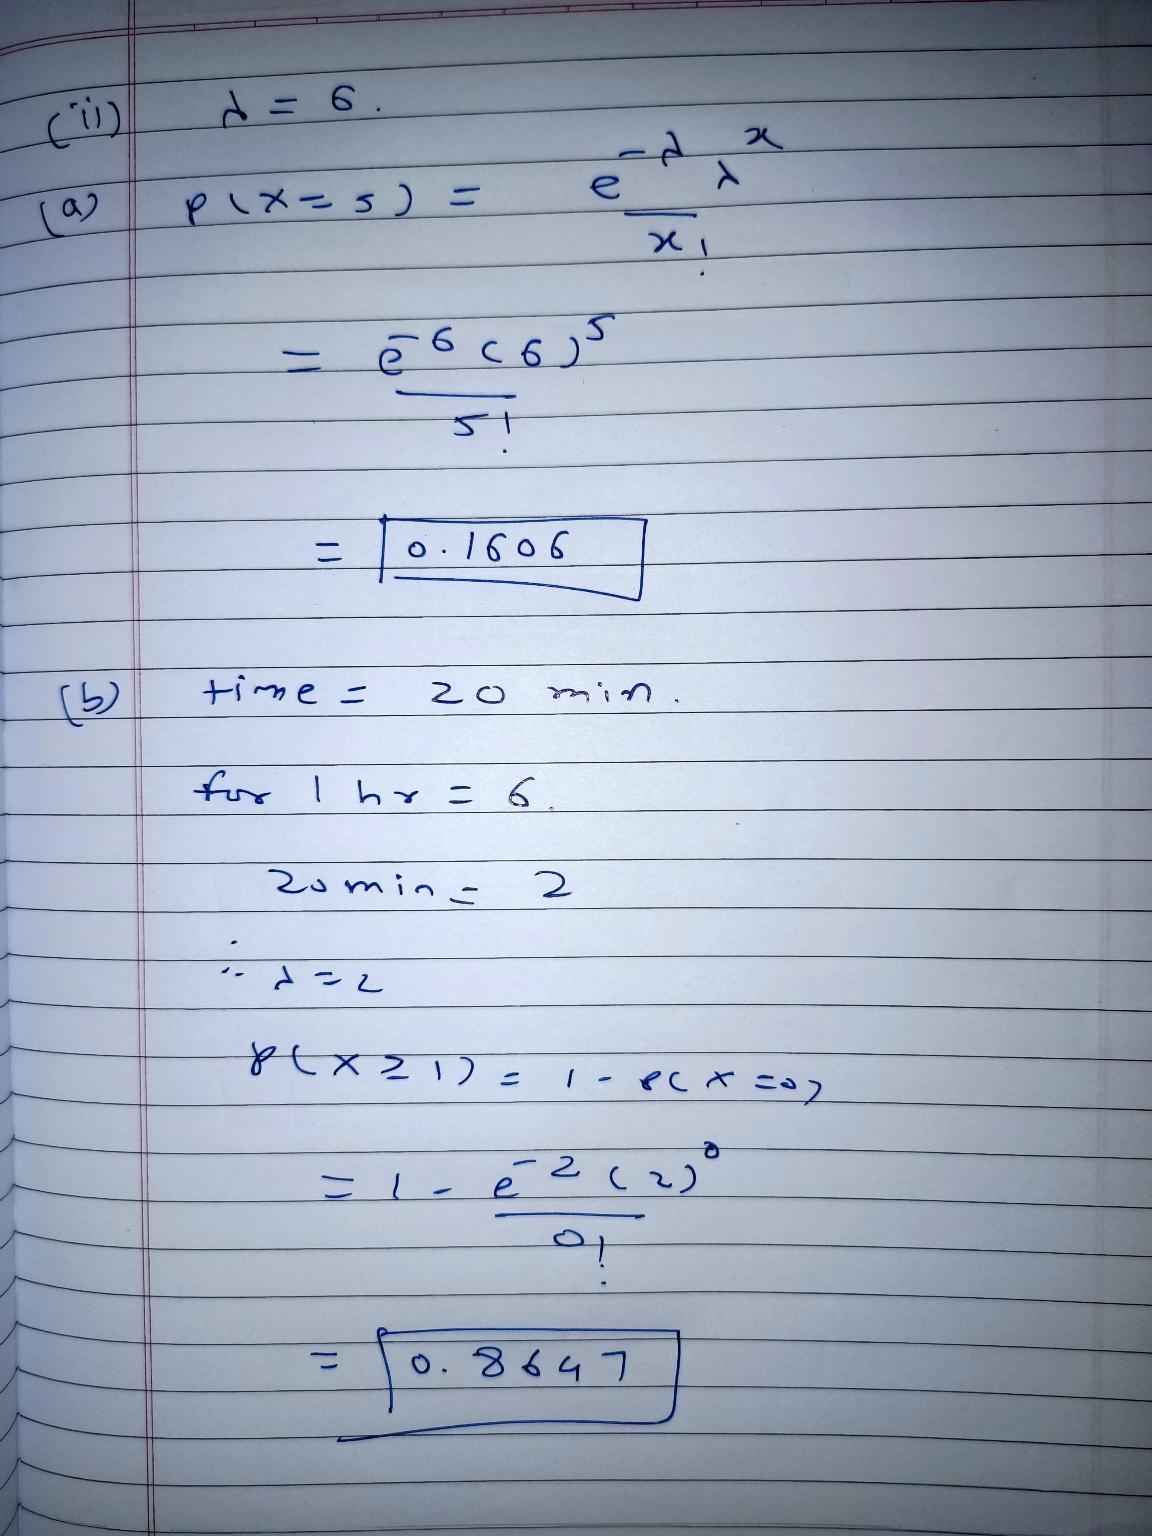 (ii) λ = 6.
(a) P(X=5) = e^-λ λ^x
x!
= e^-6 (6)^5
5!
= 0.1606
(b) time = 20 min.
for 1 hr = 6.
20 min = 2
∴ λ = 2
P(X≥1) = 1 - P(X=0)
= 1 - e^-2 (2)^0
0!
= 0.8647